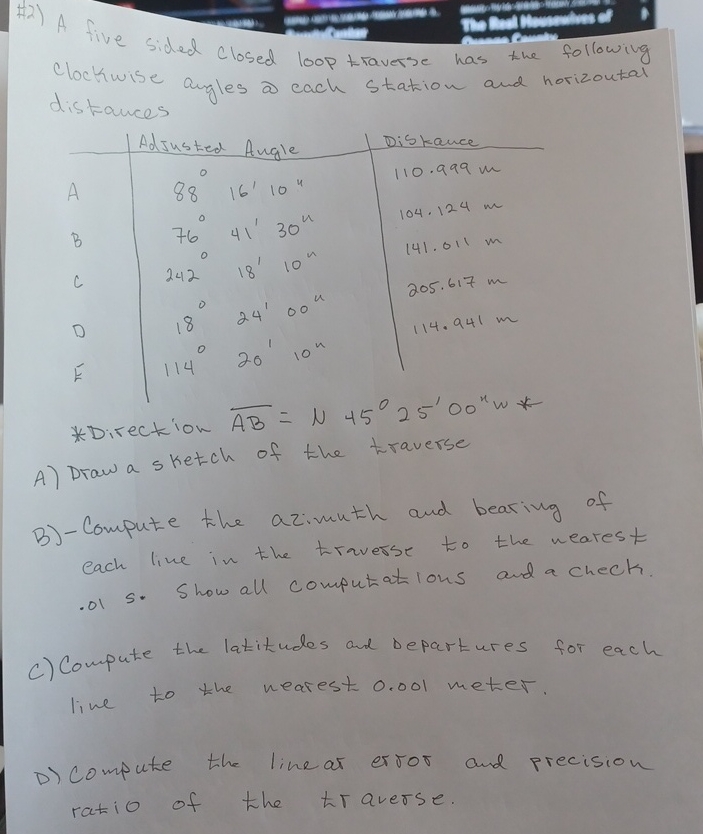 The Real Housewives of
#2) A five sided closed loop traverse has the following
clockwise angles @ each station and horizontal
distances
Adjusted Angle Distance
A 88° 16' 10" 110.999 m
B 76° 41' 30" 104.124 m
C 242° 18' 10" 141.011 m
D 18° 24' 00" 205.617 m
E 114° 20' 10" 114.941 m
*Direction AB = N 45° 25' 00" W *
A) Draw a sketch of the traverse
B)-Compute the azimuth and bearing of
each line in the traverse to the nearest
.01 s. Show all computations and a check.
C) Compute the latitudes and Departures for each
line to the nearest 0.001 meter.
D) Compute the linear error and precision
ratio of the traverse.